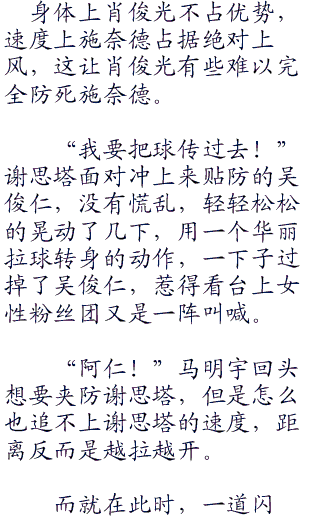 身体上肖俊光不占优势，
速度上施奈德占据绝对上
风，这让肖俊光有些难以完
全防死施奈德。
“我要把球传过去！”
谢思塔面对冲上来贴防的吴
俊仁，没有慌乱，轻轻松松
的晃动了几下，用一个华丽
拉球转身的动作，一下子过
掉了吴俊仁，惹得看台上女
性粉丝团又是一阵叫喊。
“阿仁！”马明宇回头
想要夹防谢思塔，但是怎么
也追不上谢思塔的速度，距
离反而是越拉越开。
而就在此时，一道闪